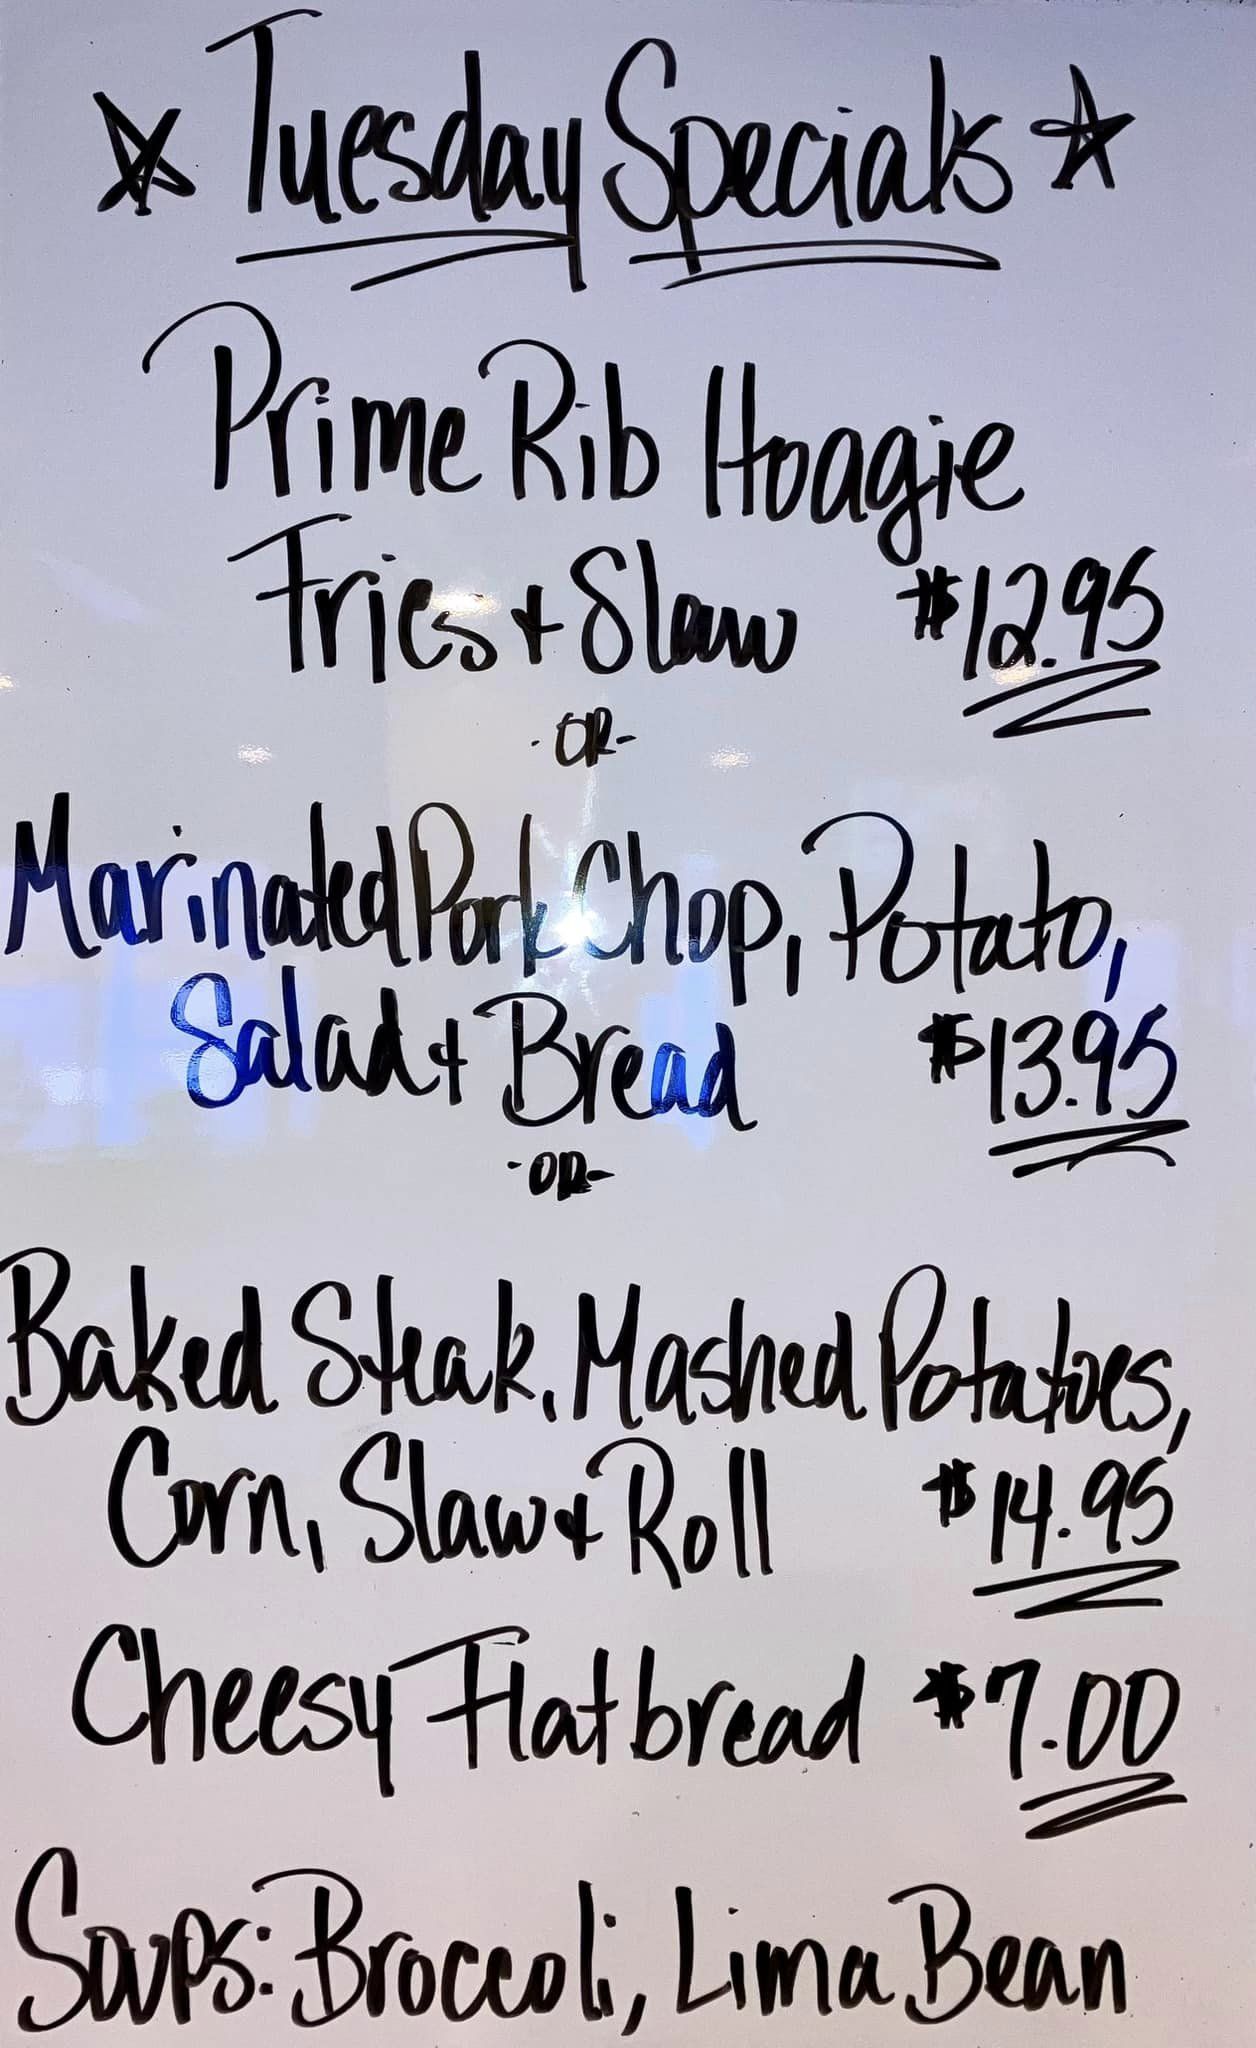 Tuesday Specials
Prime Rib Hoagie
Fries + Slaw $12.95
-OR-
Marinated Pork Chop, Potato,
Salad + Bread $13.95
-OR-
Baked Steak, Mashed Potatoes,
Corn, Slaw + Roll $14.95
Cheesy Flatbread $7.00
Soups: Broccoli, Lima Bean